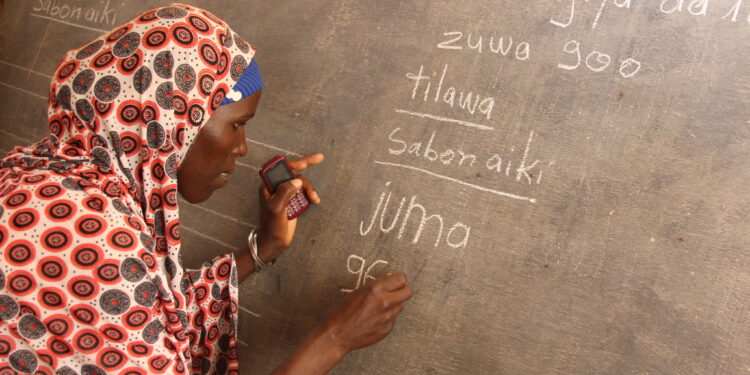 Sabonaiki
Jiya da
zuwa 900
tilawa
Sabon aiki
juma